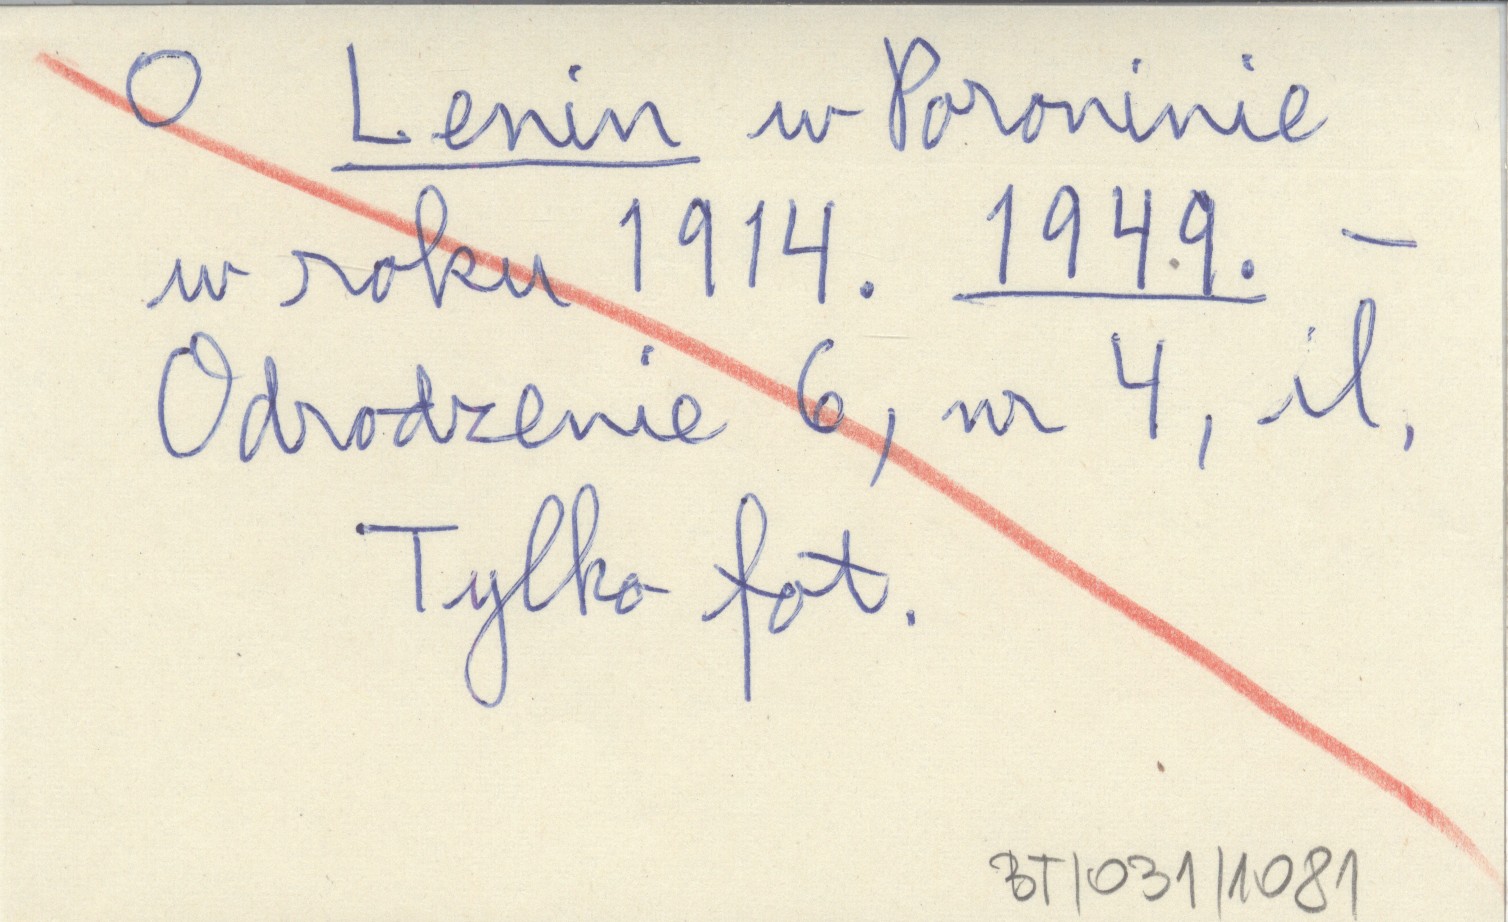 O Lenin w Poroninie
w roku 1914. 1949. –
Odrodzenie 6, nr 4, il,
Tylko fot.
BT/031/1081